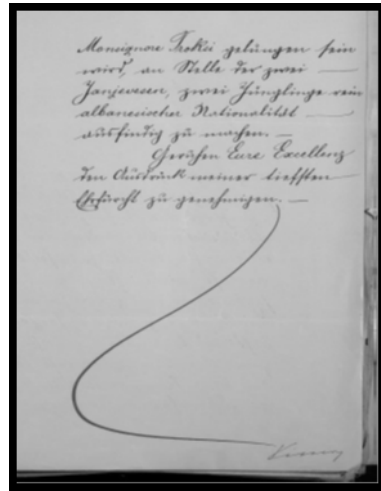 Monsignore Trokši gelungen sein
wird, an Stelle der zwei —
Janjevesen, zwei Jünglinge rein
albanesischer Nationalität —
ausfindig zu machen. —
Geruhen Eure Excellenz
den Ausdruck meiner tiefsten
Ehrfurcht zu genehmigen. —